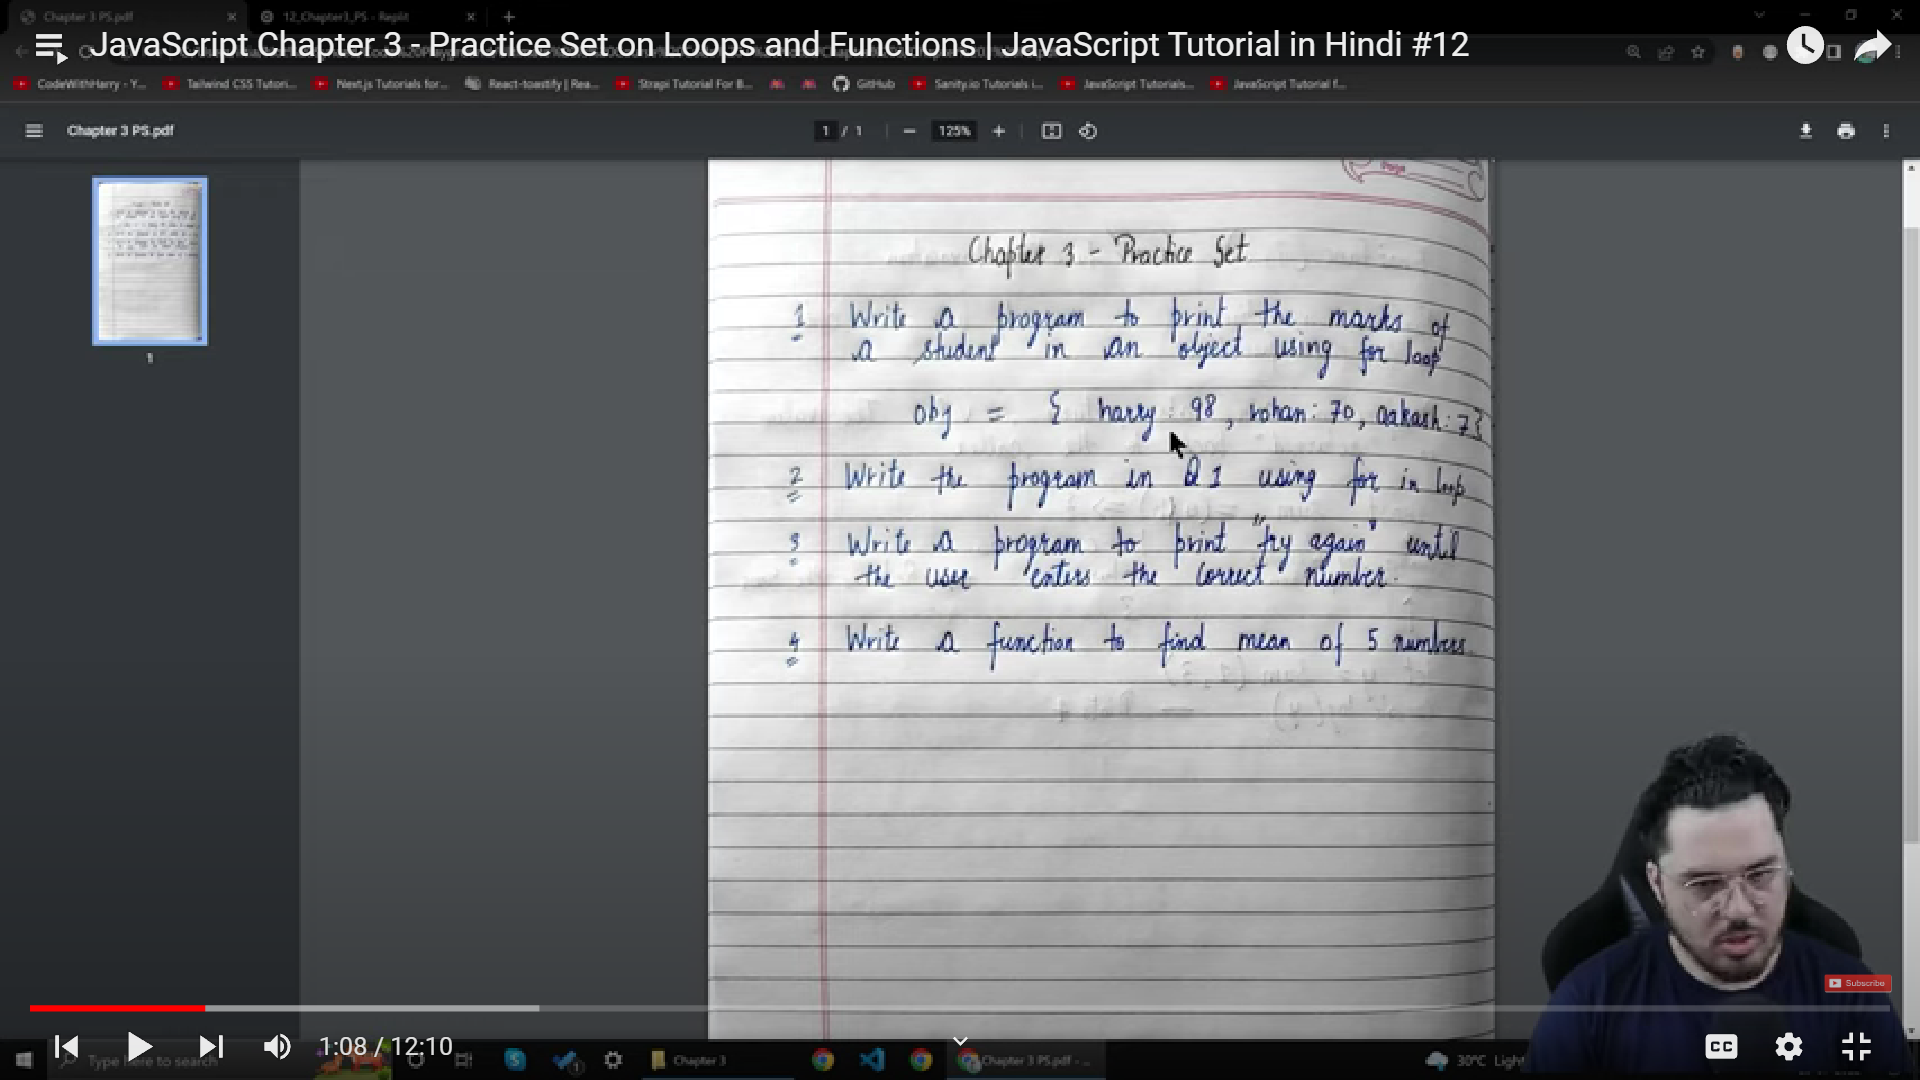 Chapter 3 PS.pdf
12_Chapter3_PS - Replit
JavaScript Chapter 3 - Practice Set on Loops and Functions | JavaScript Tutorial in Hindi #12
CodeWithHarry - Y...
Tailwind CSS Tutori...
Next.js Tutorials for...
React-toastify | Rea...
Strapi Tutorial For B...
GitHub
Sanity.io Tutorials i...
JavaScript Tutorials...
JavaScript Tutorial f...
Chapter 3 PS.pdf
1 / 1
125%
1
Chapter 3 - Practice Set
1 Write a program to print the marks of
a student in an object using for loop
obj = { harry : 98, rohan: 70, aakash: 7}
2 Write the program in Q1 using for in loop
3 Write a program to print "try again" until
the user enters the correct number.
4 Write a function to find mean of 5 numbers.
Subscribe
1:08 / 12:10
CC
Type here to search
Chapter 3
Chapter 3 PS.pdf - ...
30°C Light